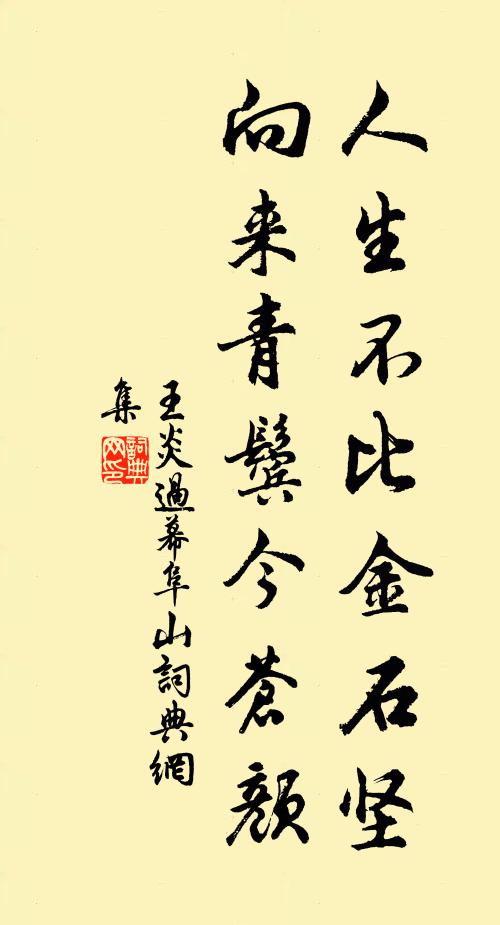 人生不比金石坚
向来青鬓今苍颜
王炎過幕阜山詞典網
集
詞典網印